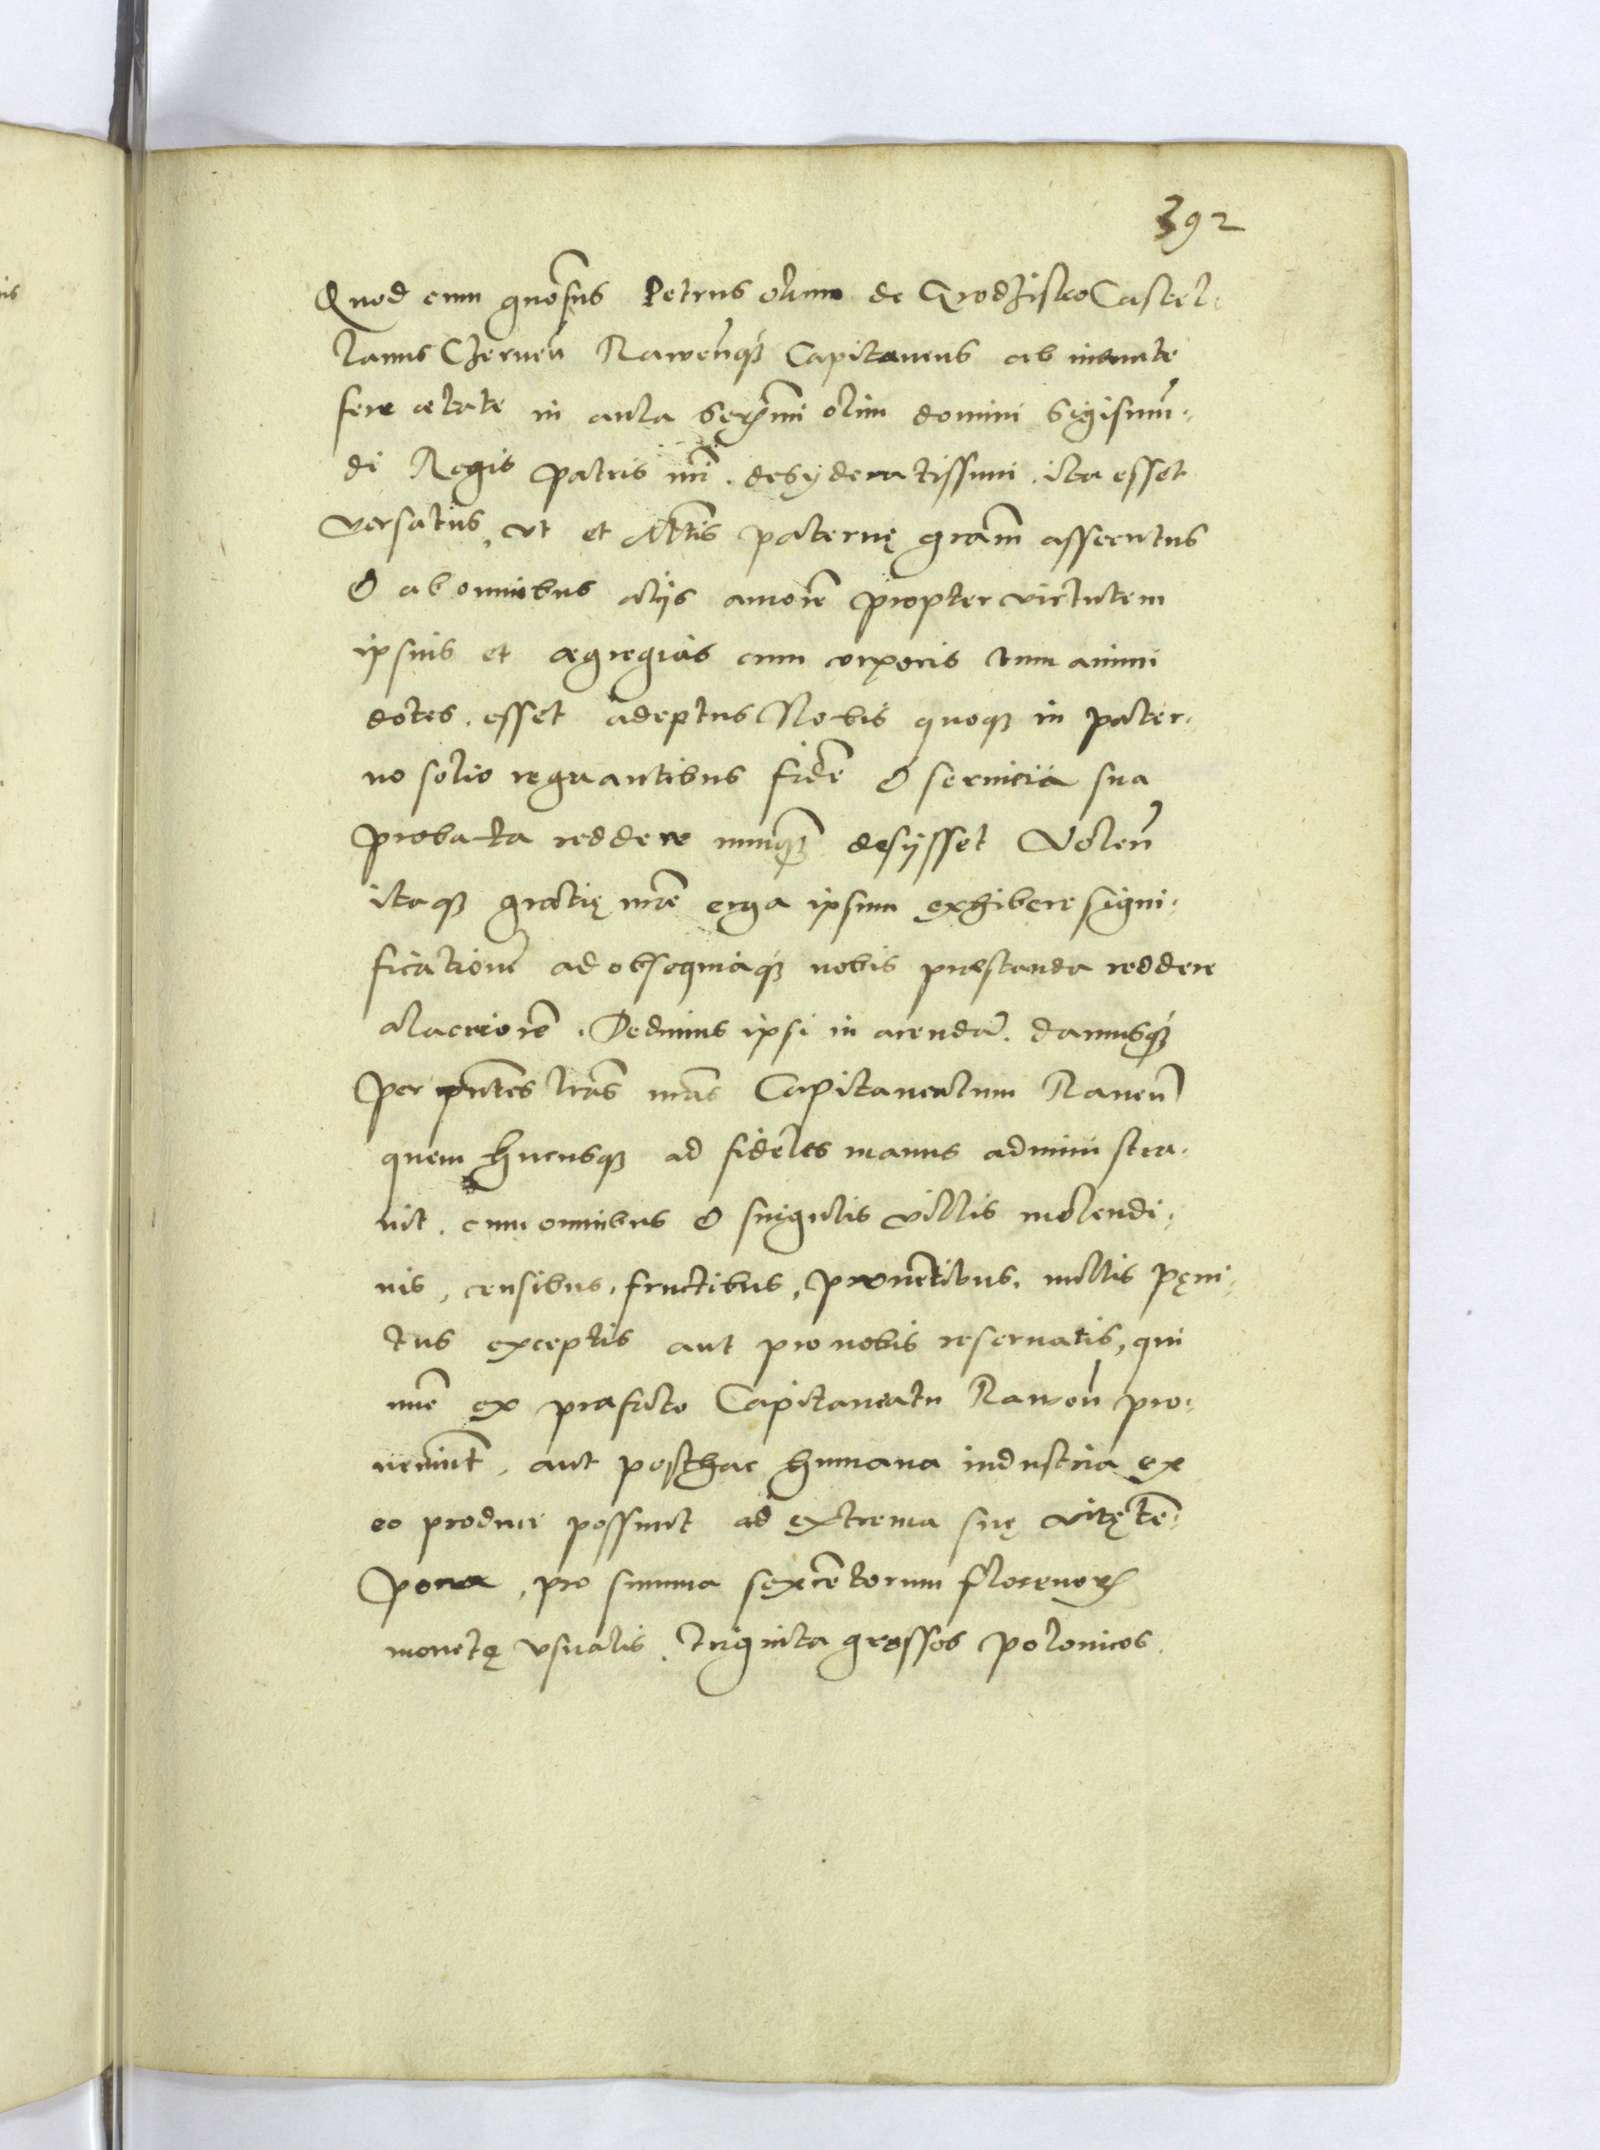 392
Quod cum gnosus Petrus olim de Grodzisko Castel-
lanus Czernen Rawenque Capitaneus ab ineunte
fere ętate in aula Sermi olim domini Sigismun-
di Regis patris nri desyderatissimi ita esset
versatus, vt et Mtis paternę gram assecutus
& ab omnibus alijs amore propter virtutem
ipsius et ęgregias cum corporis tum animi
dotes esset adeptus Nobis quoque in pater-
no solio regnantibus fide & seruicia sua
probata reddere nunquam desijsset Volen
itaque gratię nre erga ipsum exhibere signi-
fication ad obsequiaque nobis prestanda reddere
alacriore. Dedimus ipsi in arenda damusque
per pntes lras nras Capitaneatum Raven
quem hucusque ad fideles manus administra-
uit cum omnibus & singulis villis molendi-
nis, censibus, fructibus, prouentibus, nullis pęni-
tus exceptis aut pro nobis reseruatis, qui
nuc ex prafacto Capitaneatu Rawen pro-
ueniunt, aut posthac humana industria ex
eo produci possunt ad extrema suę vitę te-
pora, pro summa sexcentorum florenorum
monetę vsualis triginta grossos polonicos